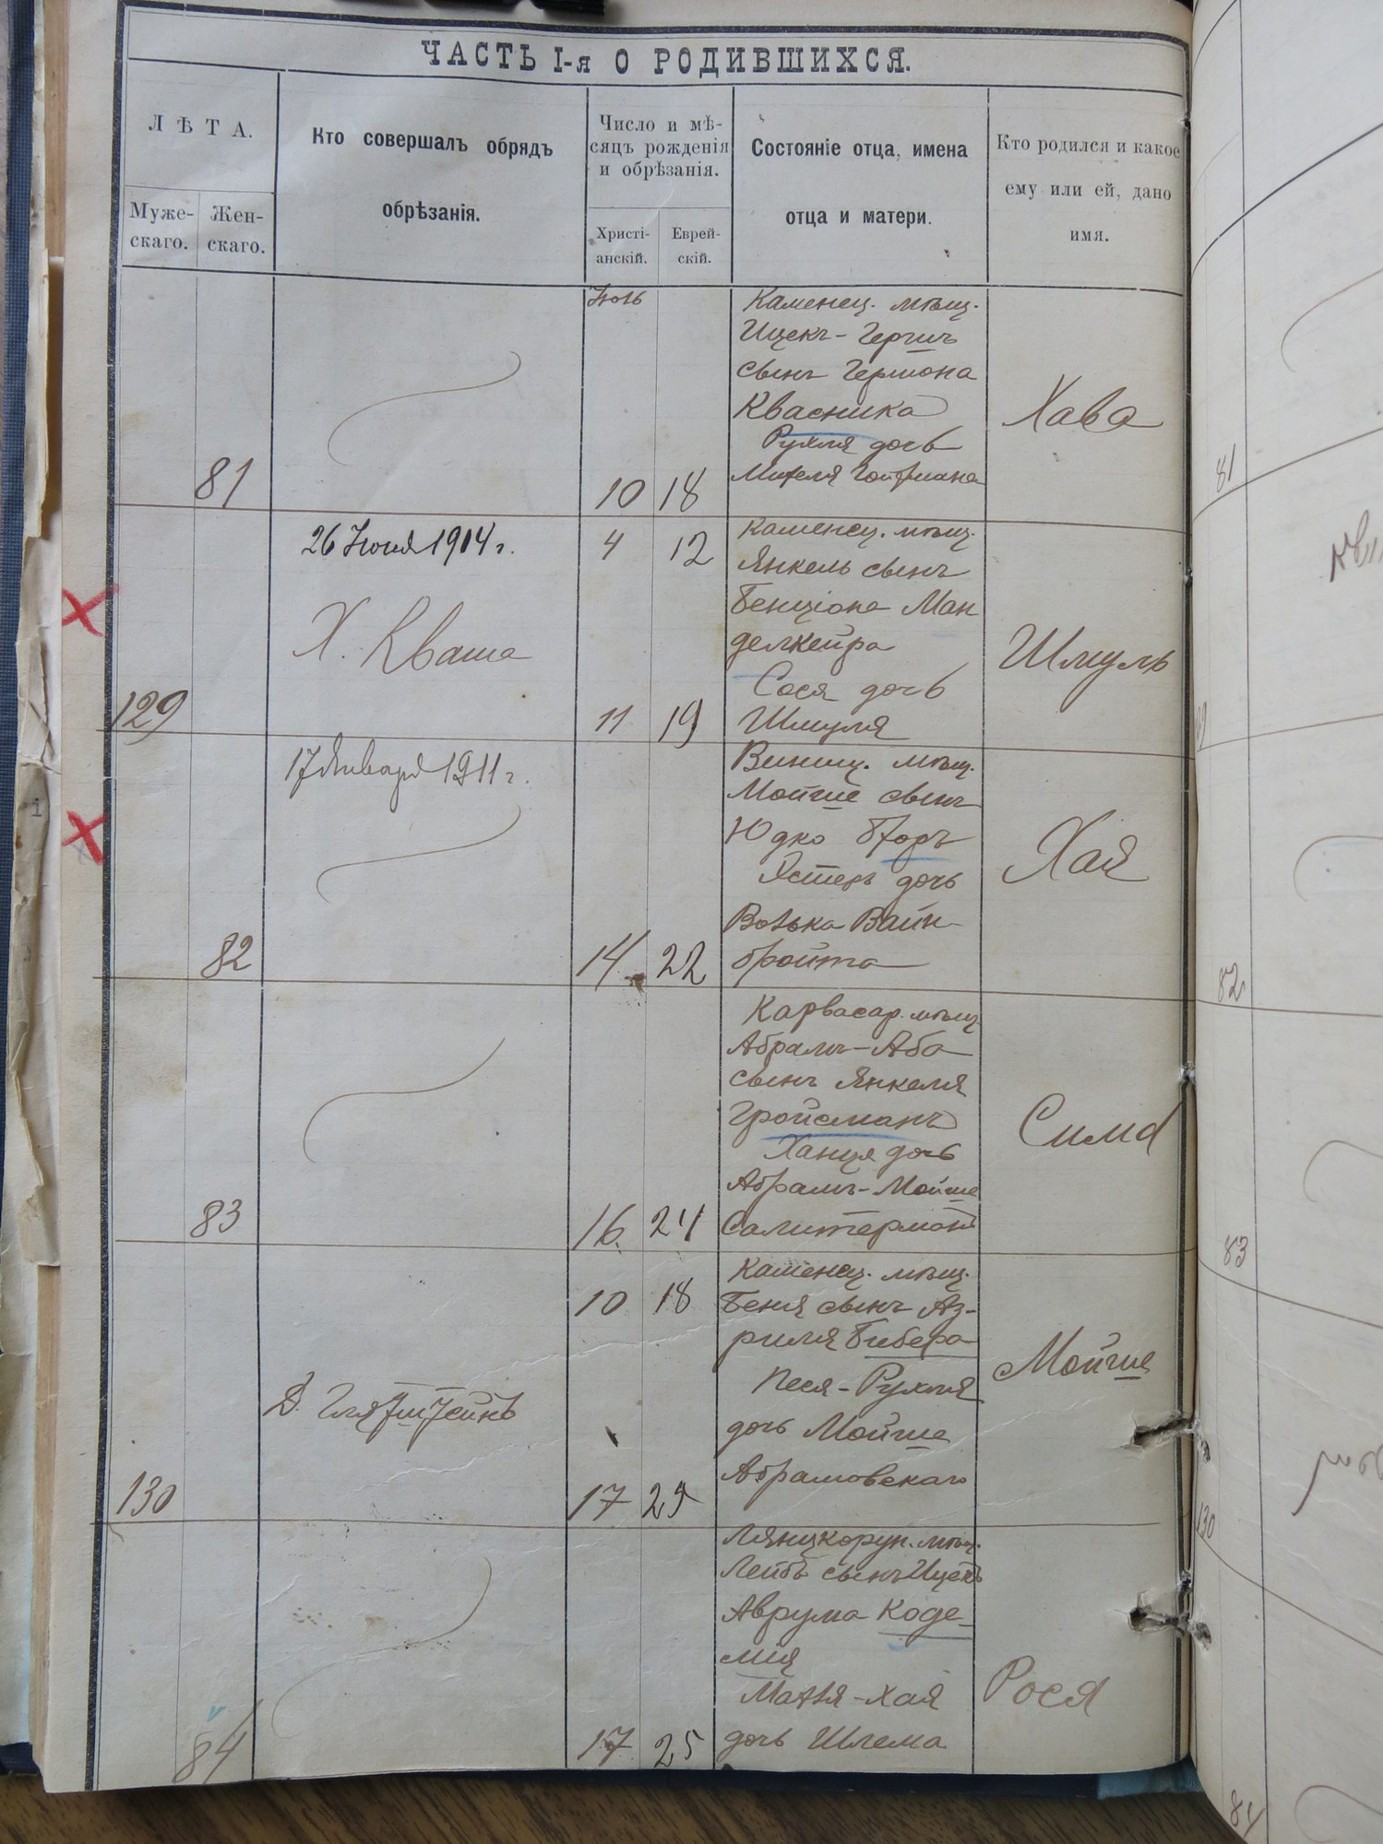 ЧАСТЬ I-я О РОДИВШИХСЯ.
ЛѢТА.
Муже-
скаго.
Жен-
скаго.
Кто совершалъ обрядъ
обрѣзанія.
Число и мѣ-
сяцъ рожденія
и обрѣзанія.
Христі-
анскій.
Еврей-
скій.
Состояніе отца, имена
отца и матери.
Кто родился и какое
ему или ей, дано
имя.
81
10
18
Каменец. мѣщ.
Ицекъ-Гершъ
сынъ Гершона
Квасника
Рухля дочь
Хава
129
26 Июня 1914 г.
Х. Кваша
4
12
11
19
Каменец. мѣщ.
Янкель сынъ
Бенціона Ман
делкейра
Сося дочь
Шмуля
Шмуль
82
17 Января 1911 г.
14
22
Винниц. мѣщ.
Мойше сынъ
Юдко
Эстеръ дочь
Волька Вайн-
бройта
Хая
83
16
24
Карвасар. мѣщ.
Абрамъ-Аба
сынъ Янкеля
Гройсманъ
Ханця дочь
Абрамъ-Мойше
Салитермана
Сима
130
10
18
17
25
Каменец. мѣщ.
Беня сынъ Аз-
риля Бибера
Песя-Рухля
дочь Мойше
Абрамовскаго
Мойше
84
17
25
Лянцкорун. мѣщ.
Лейбъ сынъ Ицекъ
Аврума Коде-
мия
Хая
дочь Шлема
Рося
81
82
83
130
84